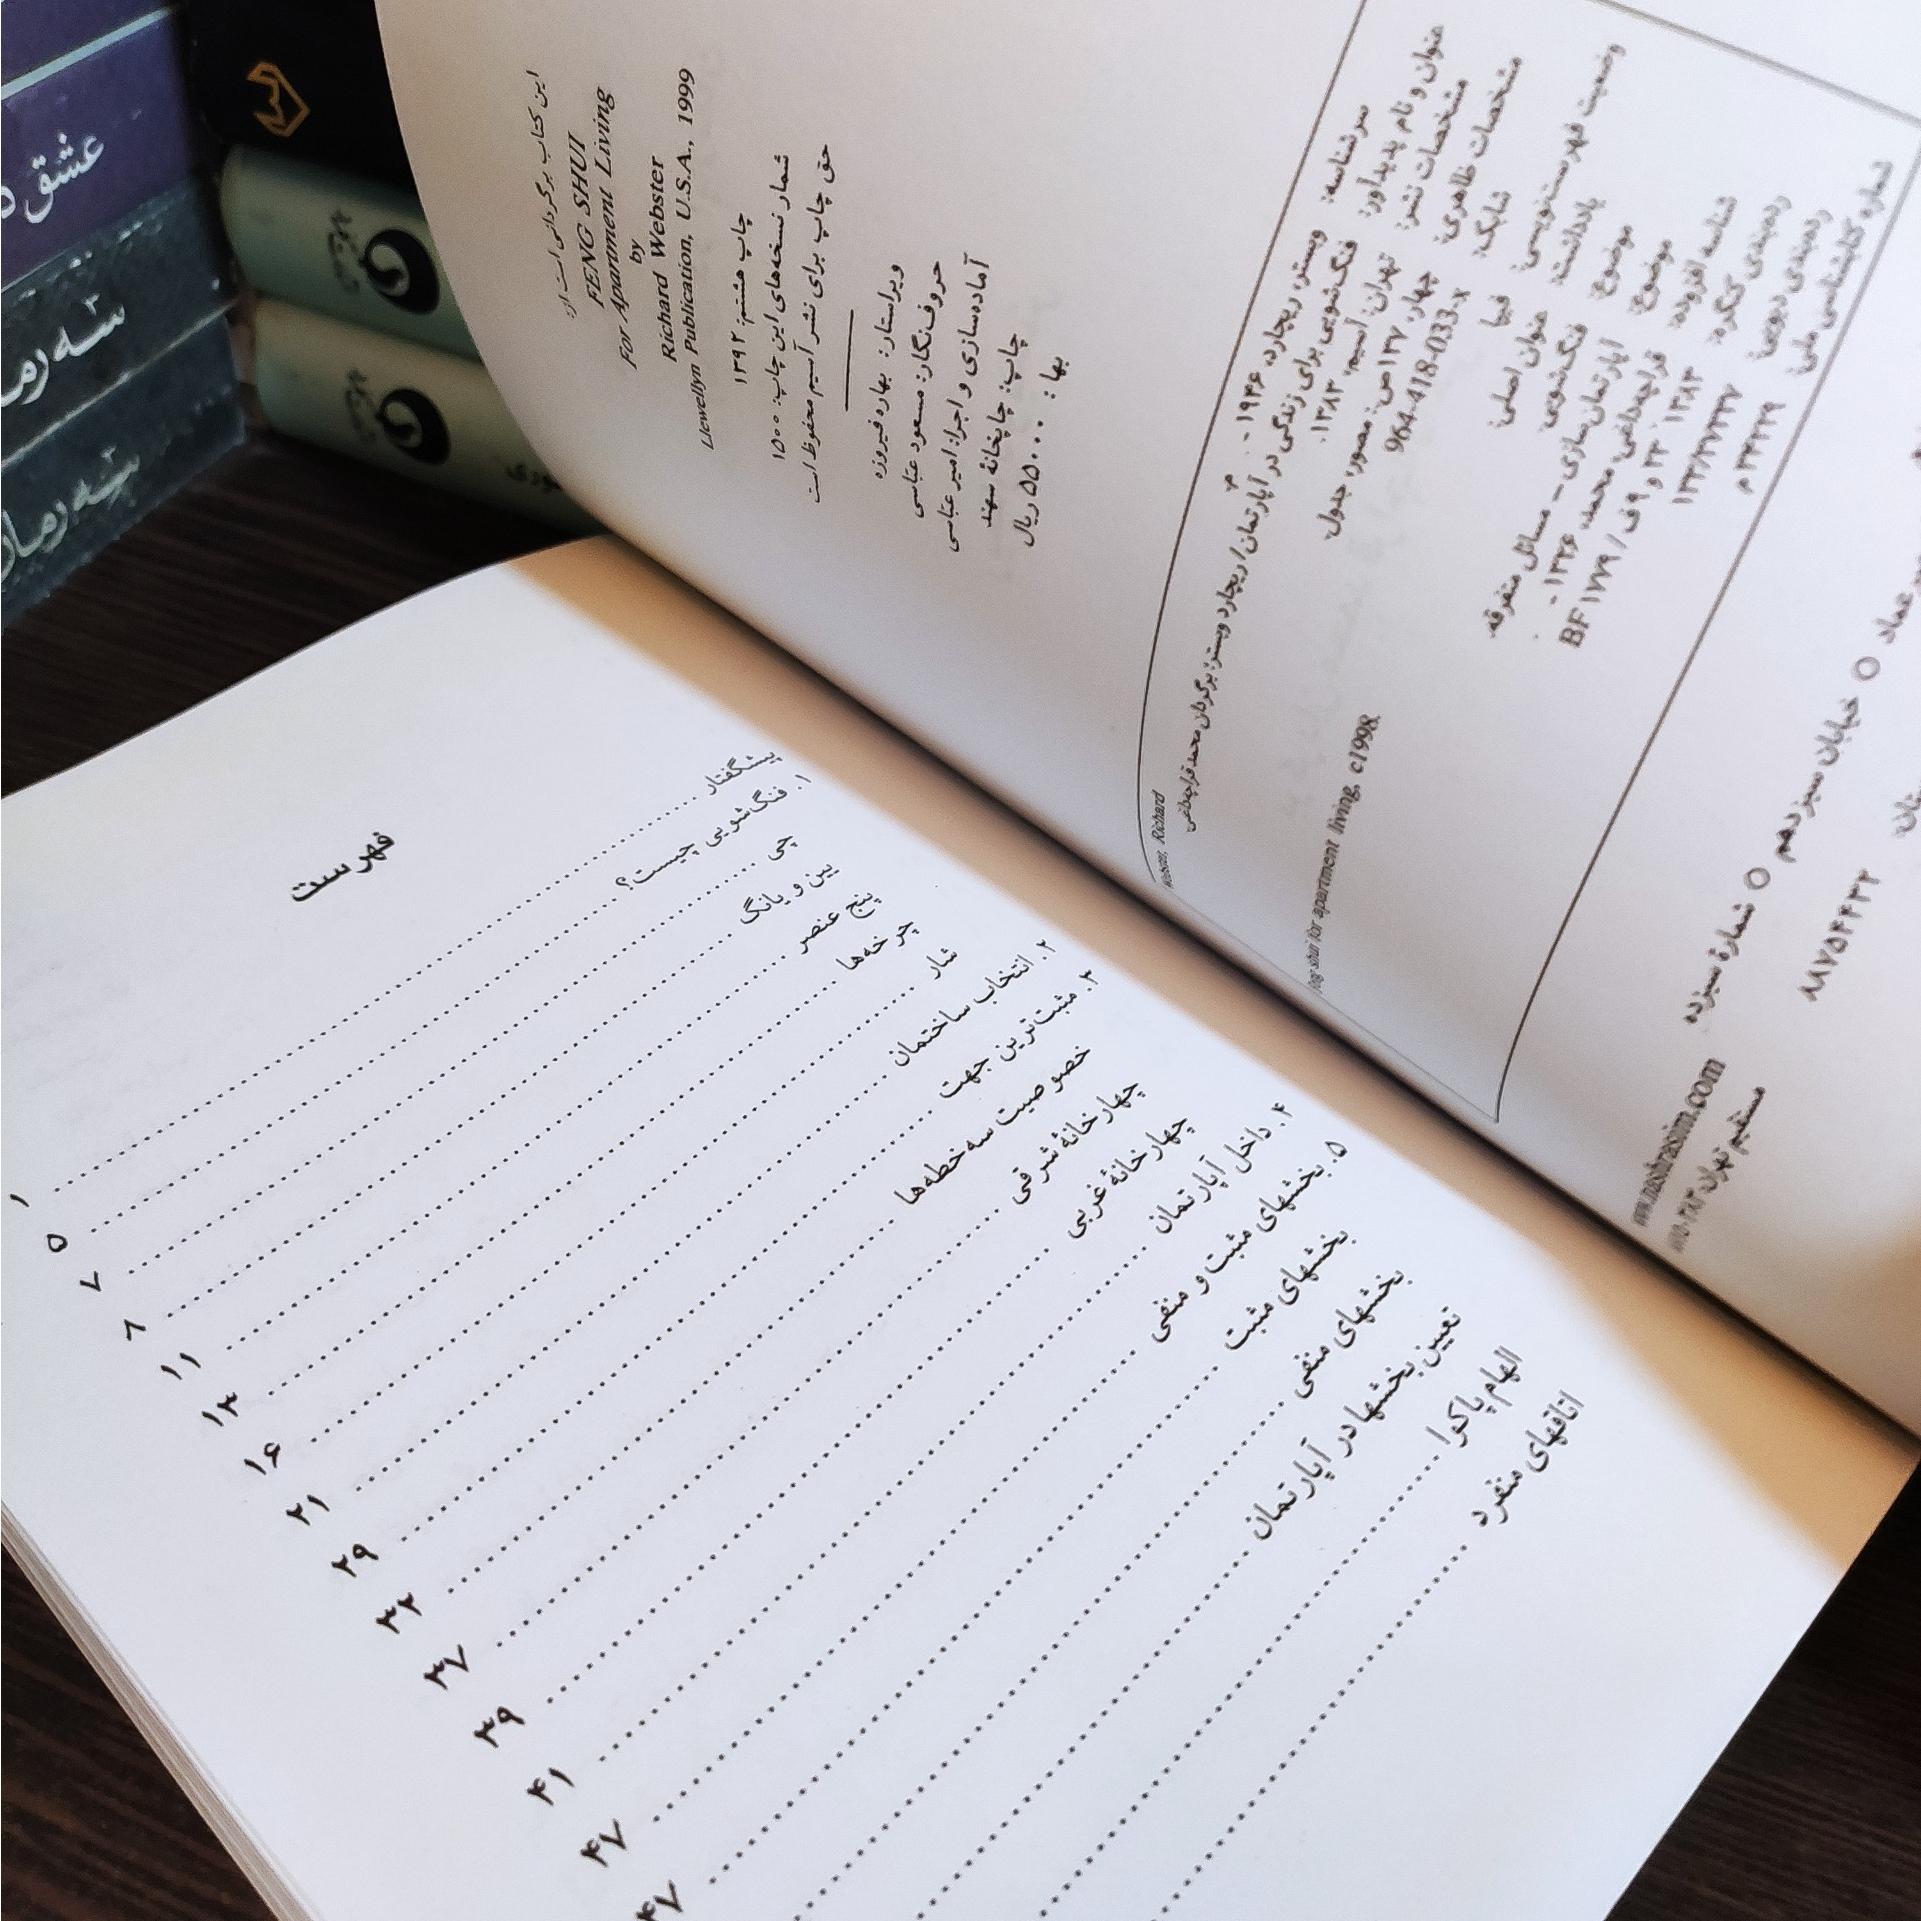 این کتاب برگردانی است از:
FENG SHUI
For Aparment Living
by
Richard Webster
Llewellyn Publication, U.S.A., 1999
چاپ هشتم: ۱۳۹۲
شمار نسخه‌های این چاپ: ۱۵۰۰
حق چاپ برای نشر آسیم محفوظ است
ویراستار: بهاره فیروزه
حروف‌نگار: مسعود عباسی
آماده‌سازی و اجرا: امیر عباسی
چاپ: چاپخانهٔ سهند
بها: ۵۵۰۰۰ ریال
سرشناسه: وبستر، ریچارد، ۱۹۴۶ - م.
Webster, Richard
عنوان و نام پدیدآور: فنگ‌شویی برای زندگی در آپارتمان/ ریچارد وبستر؛ برگردان محمد قراچه‌داغی
مشخصات نشر: تهران: آسیم، ۱۳۸۳.
مشخصات ظاهری: چهار، ۱۳۷ ص: مصور، جدول.
شابک: 964-418-033-x
وضعیت فهرست‌نویسی: فیپا
یادداشت: عنوان اصلی: feng shui for apartment living, c1998.
موضوع: فنگ‌شویی
موضوع: آپارتمان‌سازی - مسائل متفرقه.
شناسه افزوده: قراچه‌داغی، محمد، ۱۳۲۶ -
رده‌بندی کنگره: ۱۳۸۳ ۲۳ و ۹ ف / BF ۱۷۷۹
رده‌بندی دیویی: ۱۳۳/۳۳۳۷
شماره کتابشناسی ملی:
عماد ○ خیابان سیزدهم ○ شمارهٔ سیزده
۸۸۷۵۴۴۳۲
www.nashrasim.com
فهرست
پیشگفتار ۱
۱. فنگ‌شویی چیست؟ ۵
چی ۷
یین و یانگ ۸
پنج عنصر ۱۱
چرخه‌ها ۱۳
شار ۱۶
۲. انتخاب ساختمان ۲۱
۳. مثبت‌ترین جهت ۲۹
خصوصیت سه‌خطه‌ها ۳۲
چهارخانهٔ شرقی ۳۷
چهارخانهٔ غربی ۳۹
۴. داخل آپارتمان ۴۱
۵. بخشهای مثبت و منفی ۴۷
بخشهای مثبت ۴۷
بخشهای منفی
تعیین بخشها در آپارتمان
الهام پاکوا
اتاقهای منفرد
عشق
سه
سه